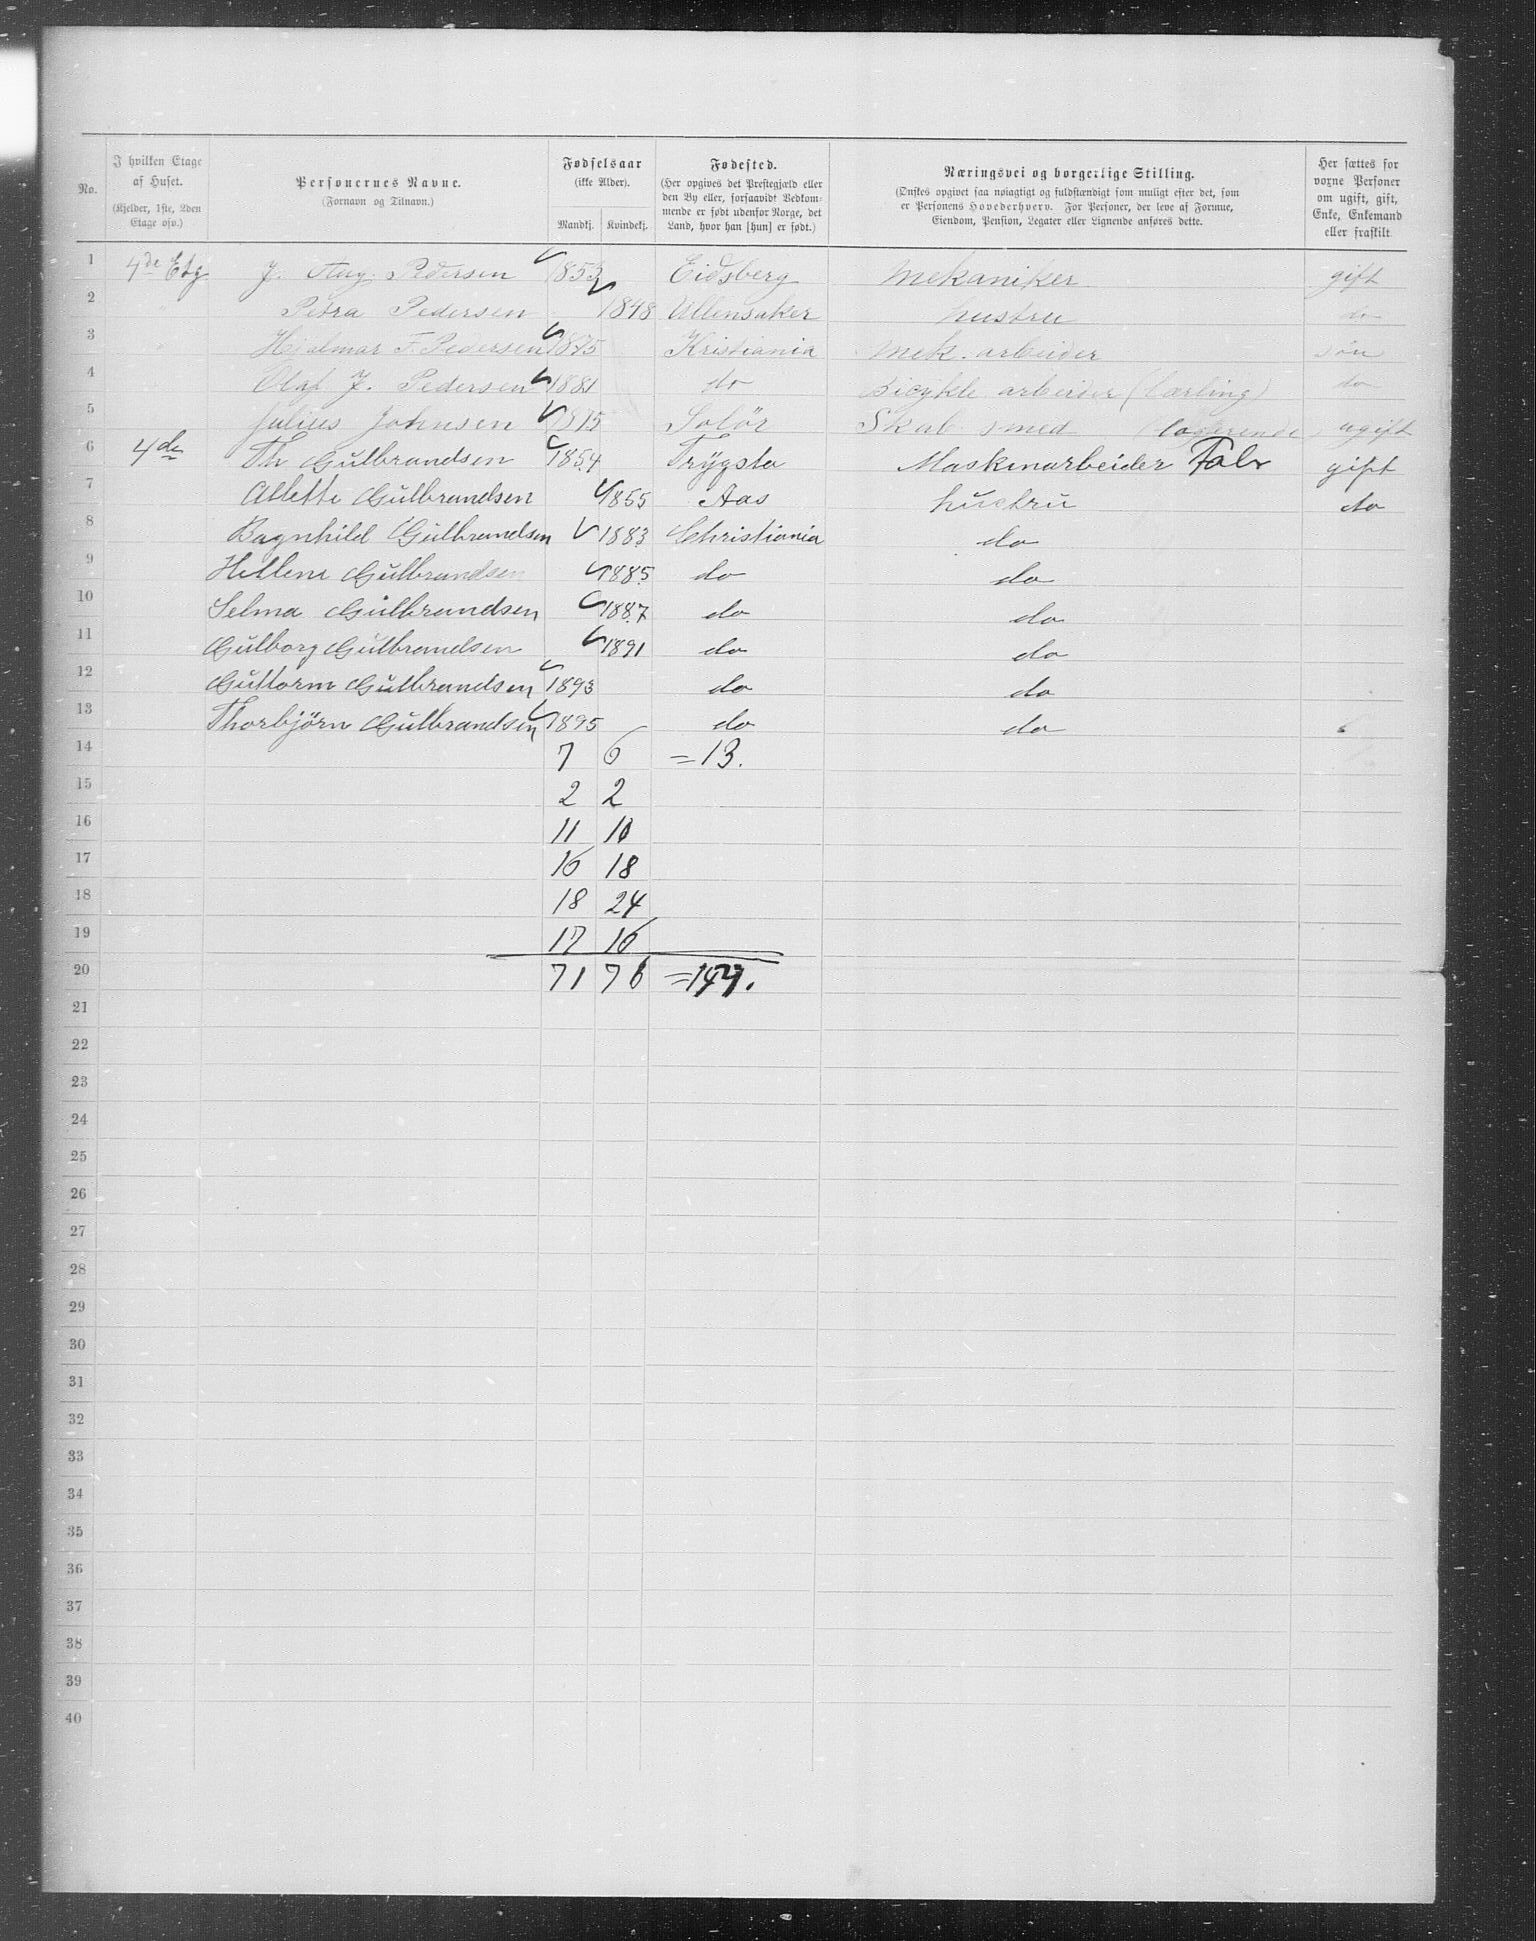 No.
I hvilken Etage af Huset.
(Kjelder, 1ste, 2den Etage osv.)
Personernes Navne.
(Fornavn og Tilnavn.)
Fødselsaar
(ikke Alder).
Mandkj. Kvindekj.
Fødested.
(Her opgives det Prestegjæld eller den By eller, forsaavidt Vedkommende er født udenfor Norge, det Land, hvor han [hun] er født.)
Næringsvei og borgerlige Stilling.
(Ønskes opgivet saa nøiagtigt og fuldstændigt som muligt efter det, som er Personens Hovederhverv. For Personer, der leve af Formue, Eiendom, Pension, Legater eller Lignende anføres dette.
Her sættes for voxne Personer om ugift, gift, Enke, Enkemand eller fraskilt
1 4de Etg J. Aug. Pedersen 1853 Eidsberg Mekaniker gift
2 Petra Pedersen 1848 Ullensaker hustru do
3 Hjalmar F. Pedersen 1875 Kristiania Mek. arbeider søn
4 Olaf J. Pedersen 1881 do Bicykle arbeider (lærling) do
5 Julius Johnsen 1815 Solør Skab smed (logerende) ugift
6 4de Th Gulbrandsen 1854 Trygsta Maskinarbeider Fabr gift
7 Atlette Gulbrandsen 1855 Aas hustru do
8 Ragnhild Gulbrandsen 1883 Christiania do
9 Hellene Gulbrandsen 1885 do do
10 Selma Gulbrandsen 1887 do do
11 Gulborg Gulbrandsen 1891 do do
12 Guttorm Gulbrandsen 1893 do do
13 Thorbjörn Gulbrandsen 1895 do do
14 7 6 = 13.
15 2 2
16 11 10
17 16 18
18 18 24
19 17 16
20 71 76 = 147.
21
22
23
24
25
26
27
28
29
30
31
32
33
34
35
36
37
38
39
40